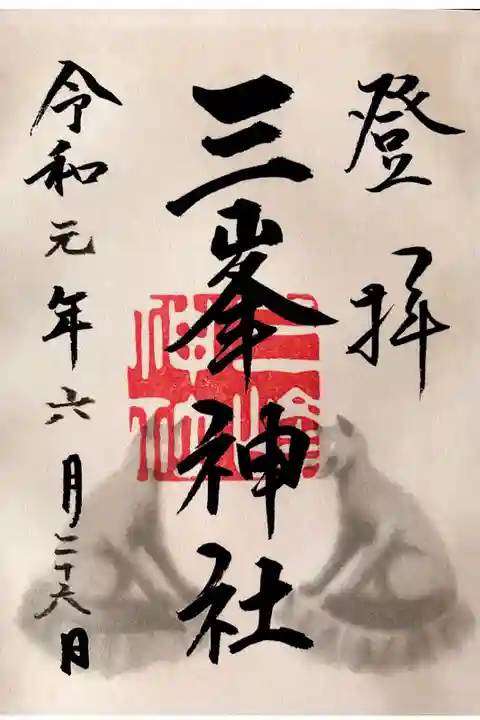 登拝
三峯神社
三峰神社
令和元年六月二十六日